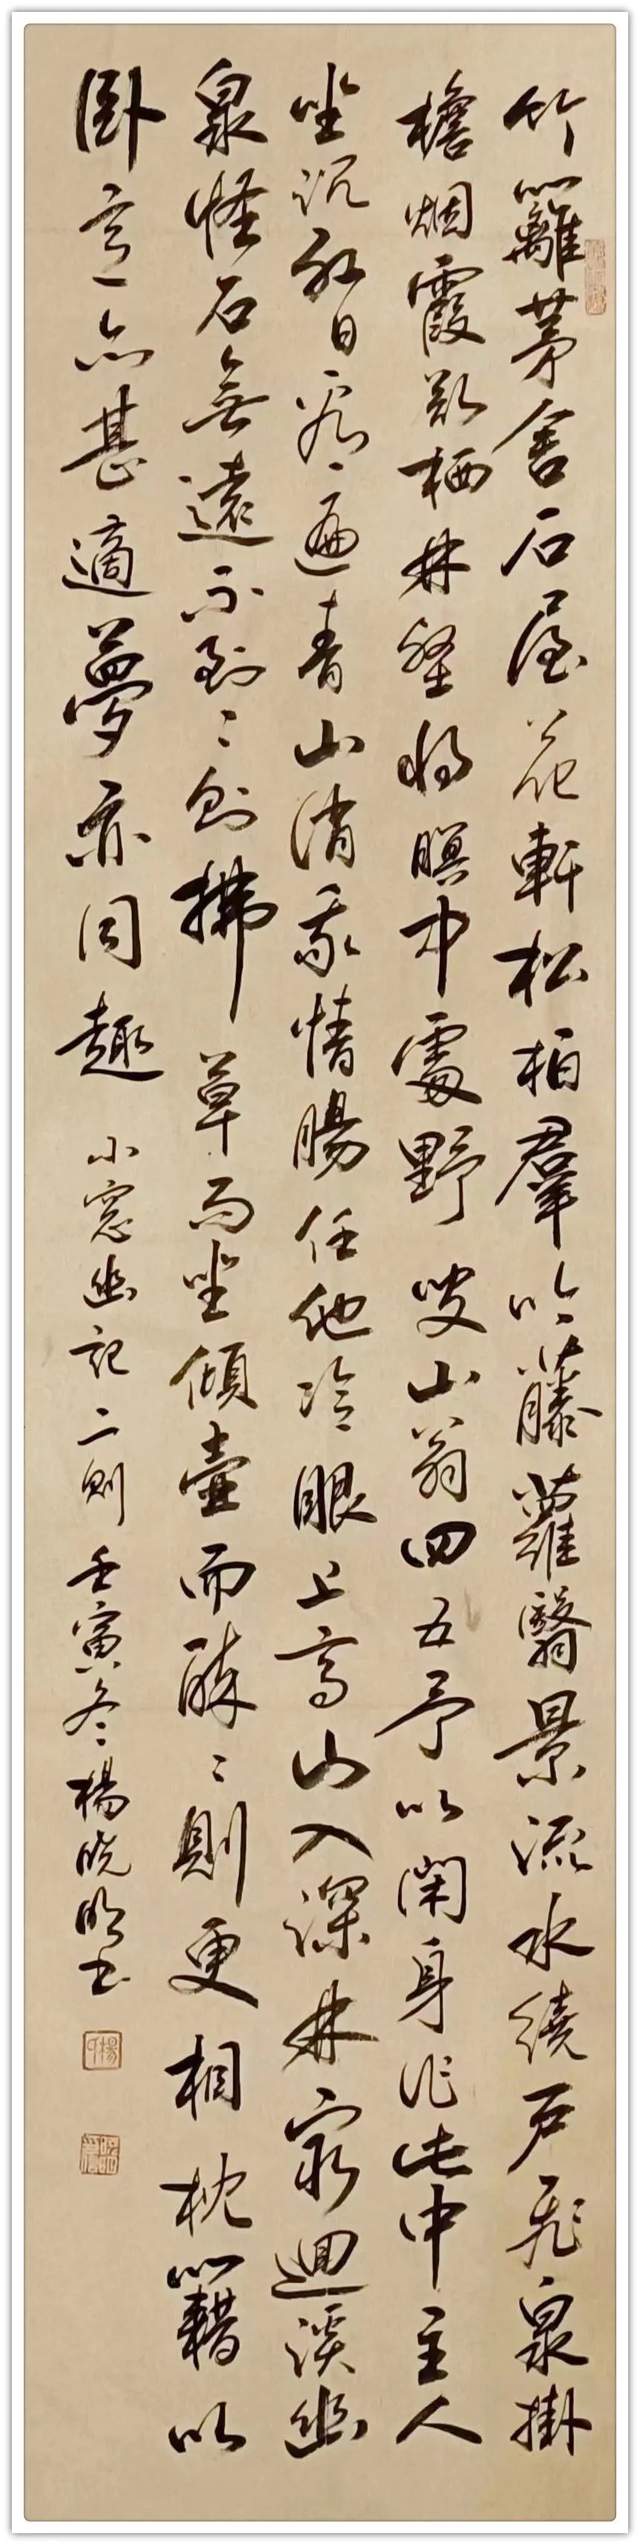 竹籬茅舍石屋花軒松柏群吟藤蘿翳景流水繞戶飛泉掛
檐烟霞欲栖林壑將瞑中處野叟山翁四五予以閑身作此中主人
坐沉紅日看遍青山消我情腸任他冷眼上高山入深林窮迴溪幽
泉怪石無遠不到到則拂草而坐傾壺而醉醉則更相枕籍以
卧意亦甚適夢亦同趣
小窓幽記二則壬寅冬楊曉明書